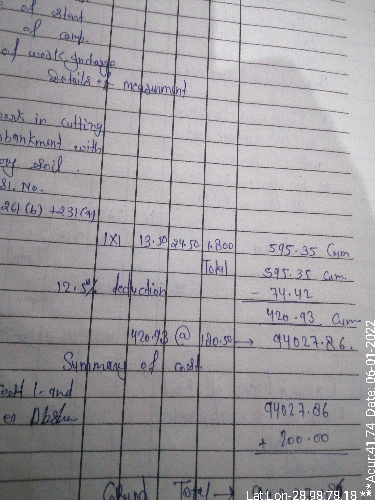 of start
of comp.
of work
Details of measurment
work in cutting
embankment with
soil.
Sl. No.
261(b) + 231(a)
1x1 13.50 24.50 1.800 595.35 Cum
Total 595.35 Cum.
12.5% deduction - 74.42
420.93 Cum
420.93 @ 180.50 → 94027.86.
Summary of cost.
and 94027.86
+ 200.00
Grand Total →
Lat Lon-28.98:79.18 **Acur:4174, Date:06-01-2022